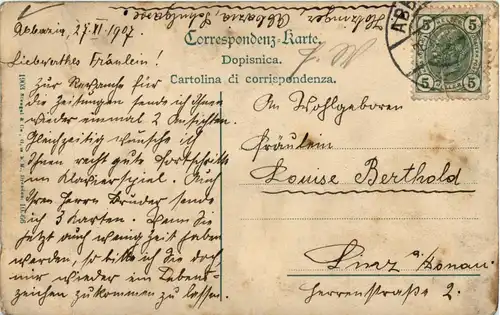 Abbazia, 27/VI 1907
Correspondenz-Karte.
Dopisnica.
Cartolina di corrispondenza.
Liebwerthes Fräulein!
Zur Revanche für
die Zeitungen sende ich Ihnen
wieder einmal 2 Ansichten.
Gleichzeitig wünsche ich
Ihnen recht gute Fortschritte
im Klavierspiel. Auch
Ihrem Herrn Bruder sende
ich 3 Karten. Wenn Sie
jetzt auch wenig Zeit haben
werden, so bitte ich Sie doch
mir wieder ein Lebens-
zeichen zukommen zu lassen.
An Wohlgeboren
Fräulein
Louise Berthold
Linz a/Donau.
Herrenstraße 2.
5 5
5 5
ABB